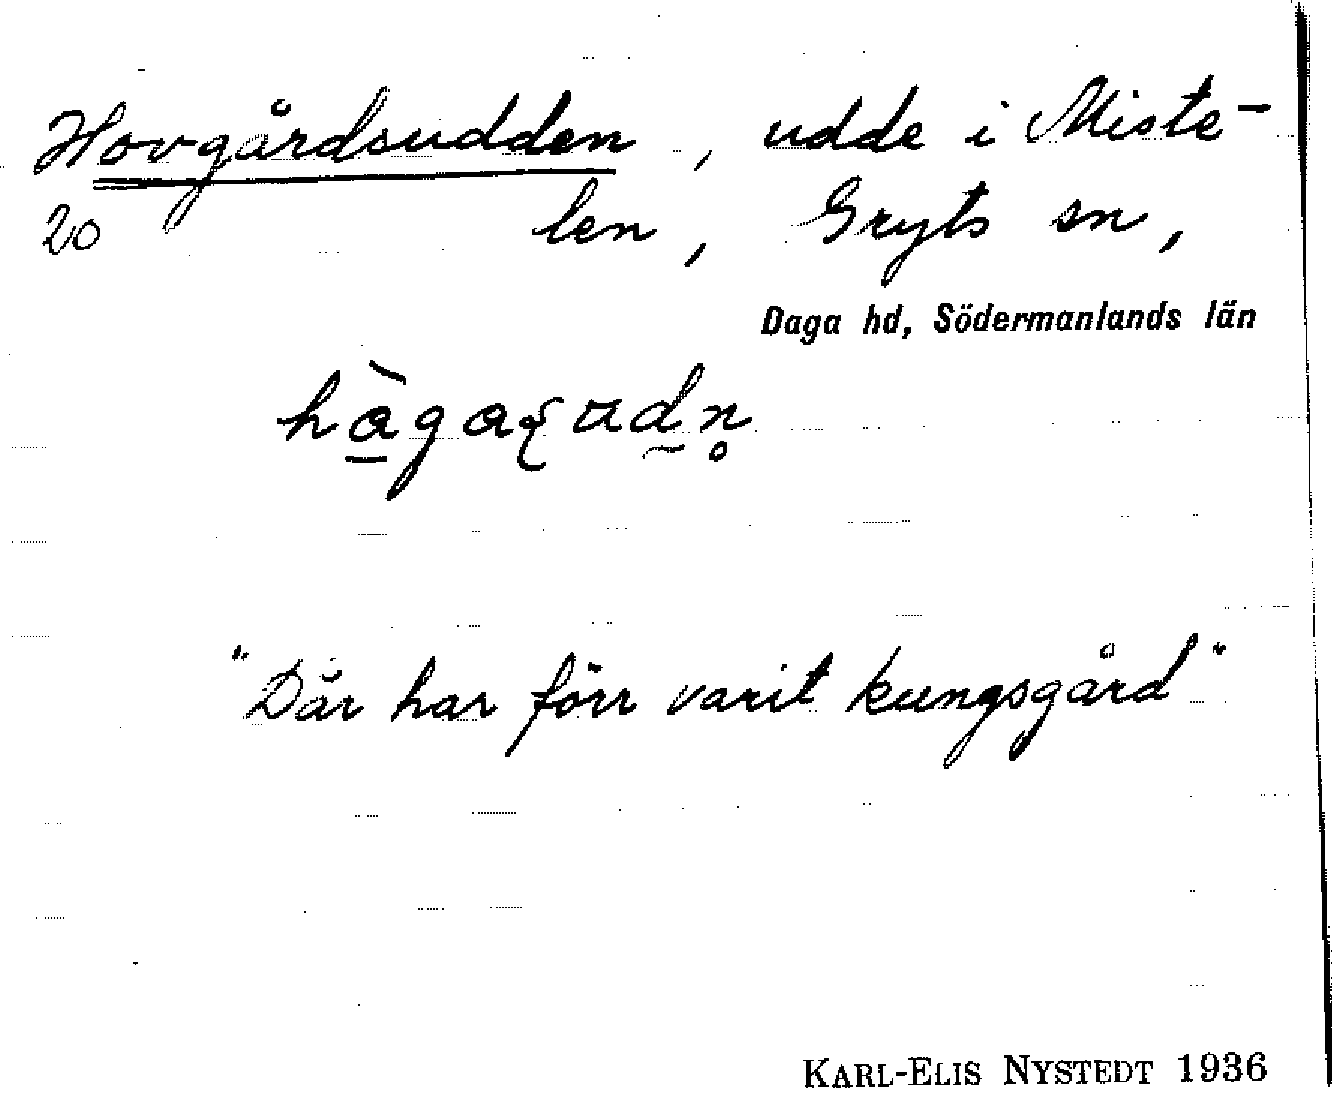 Hovgårdsudden, udde i Miste-
20 len, Gryts sn,
Daga hd, Södermanlands län
"Där har förr varit kungsgård"
KARL-ELIS NYSTEDT 1936